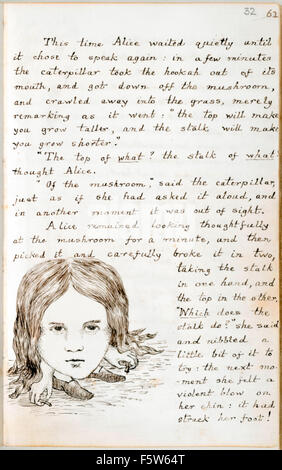 32 62
This time Alice waited quietly until
it chose to speak again: in a few minutes
the caterpillar took the hookah out of its
mouth, and got down off the mushroom,
and crawled away into the grass, merely
remarking as it went: "the top will make
you grow taller, and the stalk will make
you grow shorter."
"The top of what? the stalk of what?"
thought Alice.
"Of the mushroom," said the caterpillar,
just as if she had asked it aloud, and
in another moment it was out of sight.
Alice remained looking thoughtfully
at the mushroom for a minute, and then
picked it and carefully broke it in two,
taking the stalk
in one hand, and
the top in the other.
"Which does the
stalk do?" she said
and nibbled a
little bit of it to
try: the next mo-
ment she felt a
violent blow on
her chin: it had
struck her foot!
alamy stock photo
F5W64T